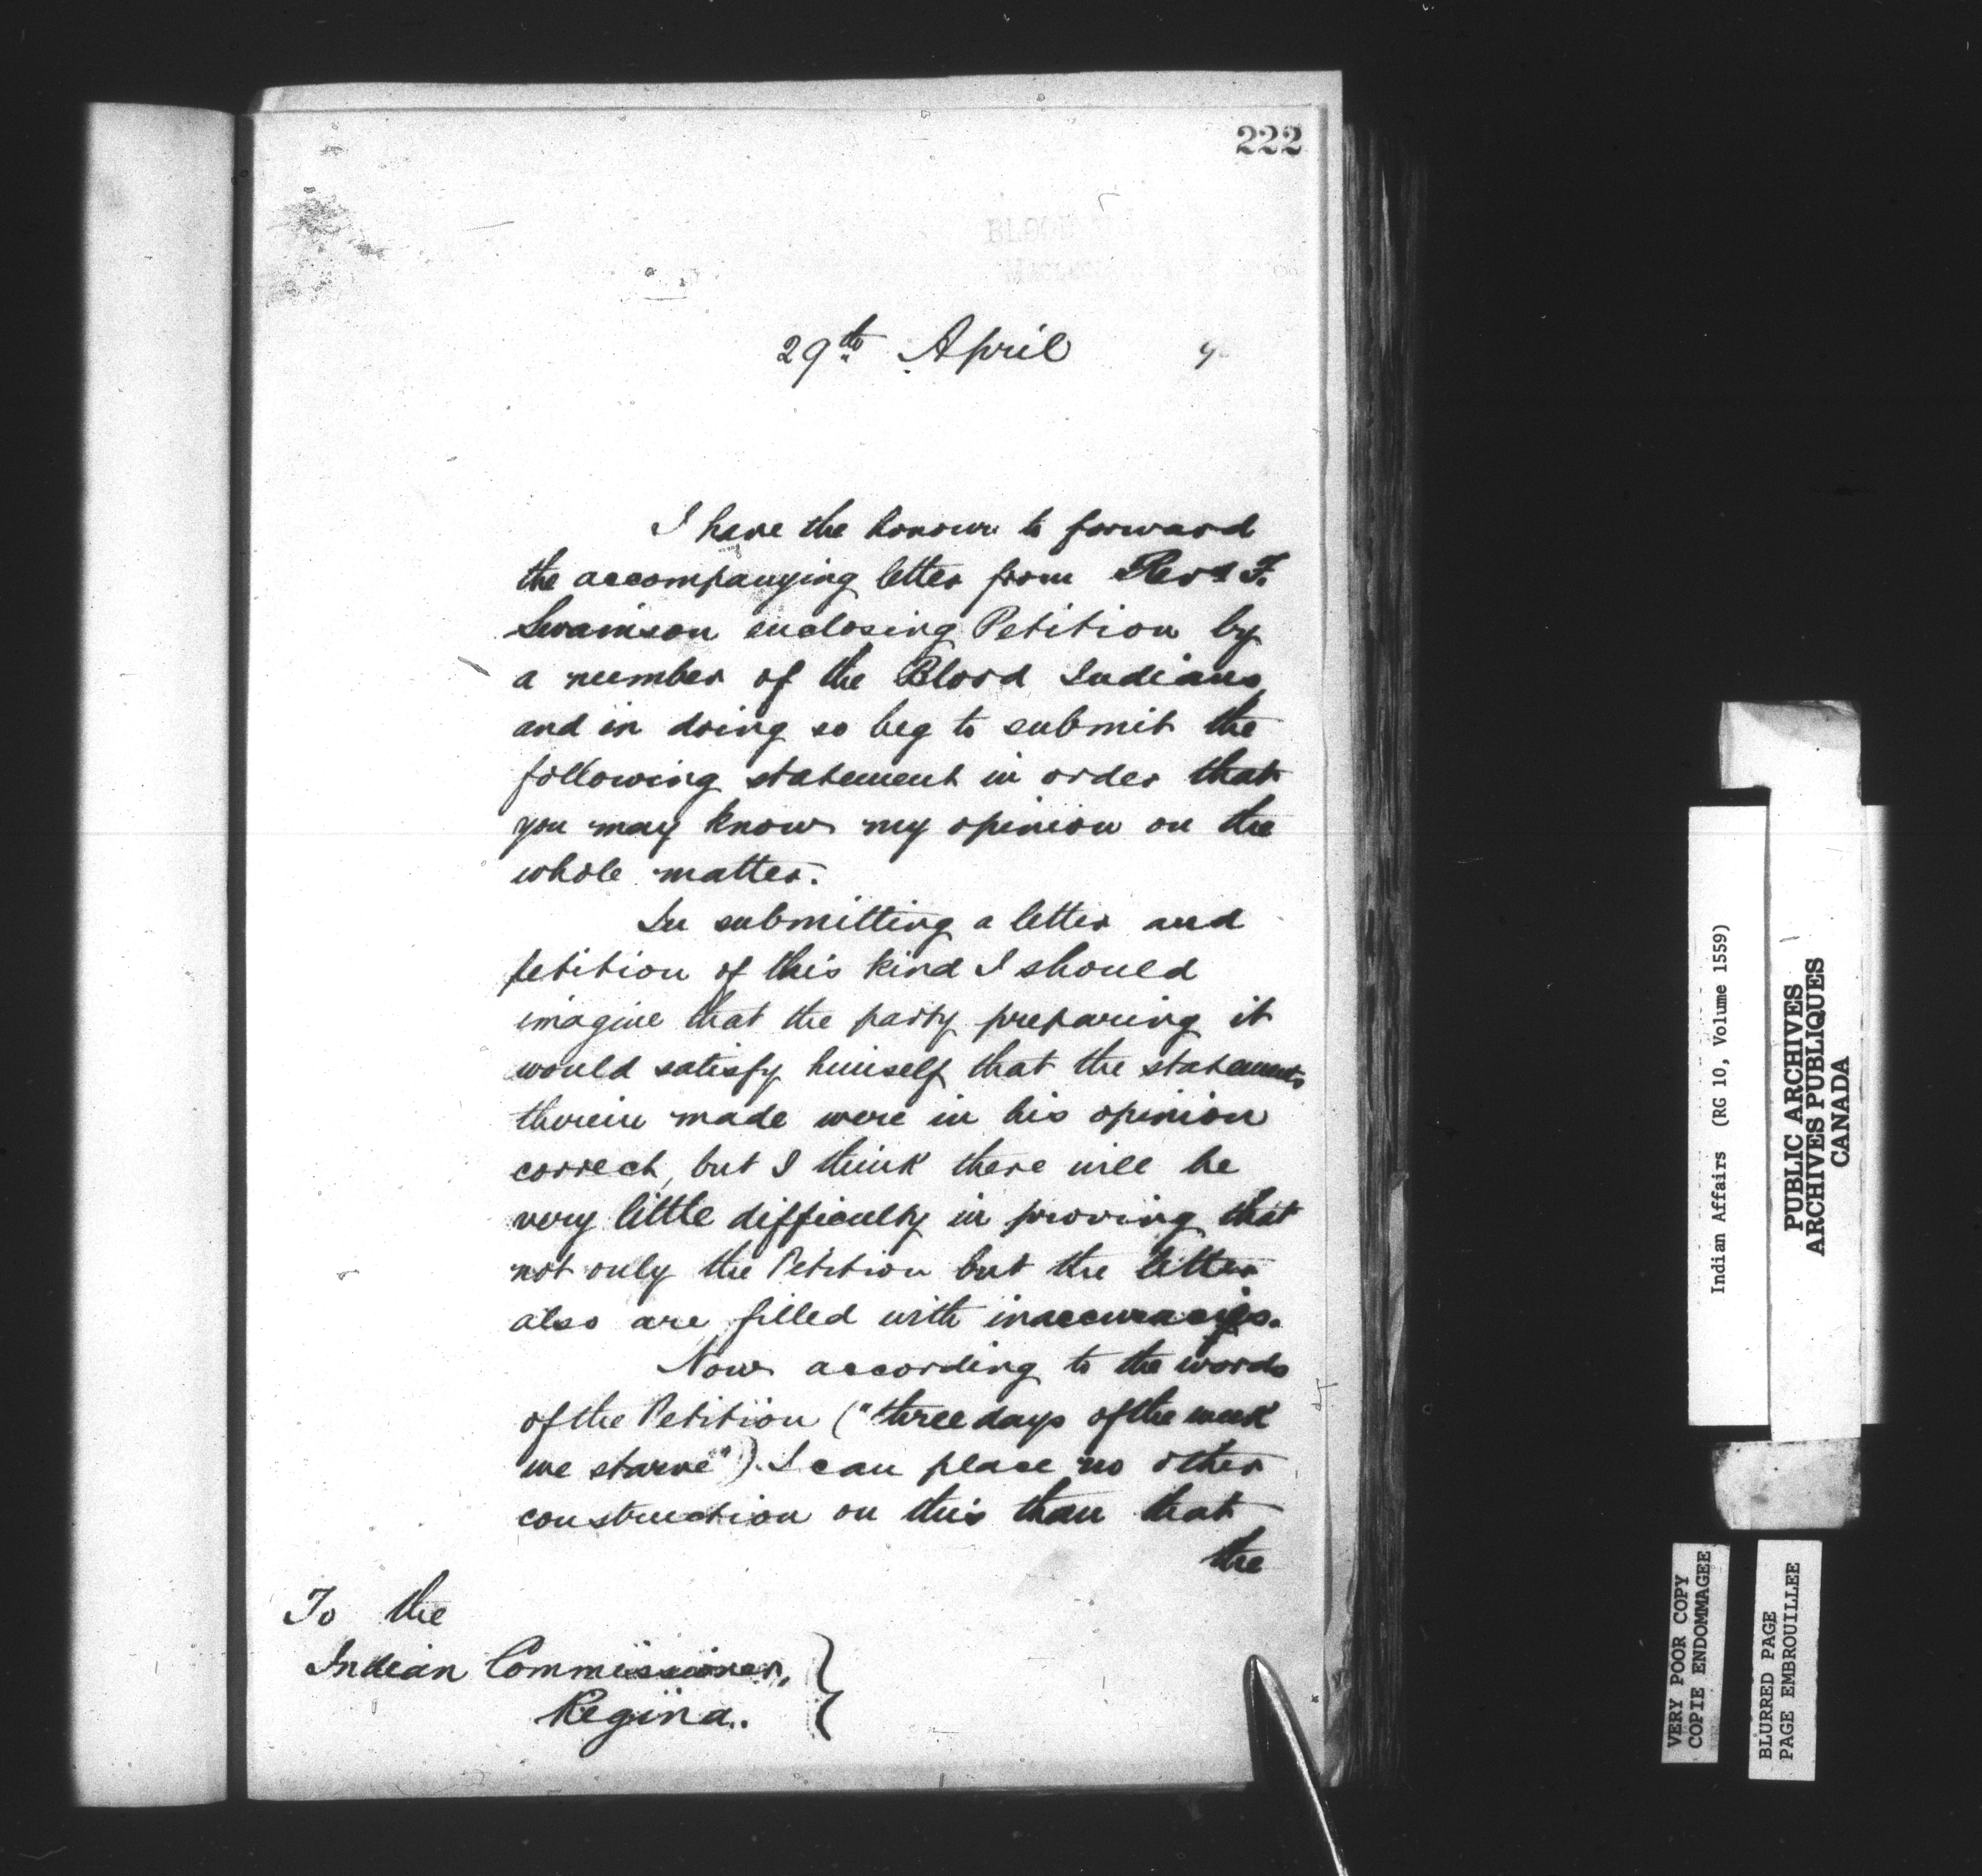 222
BLOOD
29th April 9
I have the honour to forward
the accompanying letter from Revd F.
Swainson enclosing Petition by
a number of the Blood Indians,
and in doing so beg to submit the
following statement in order that
you may know my opinion on the
whole matter.
In submitting a letter and
petition of this kind I should
imagine that the party preparing it
would satisfy himself that the statements
therein made were in his opinion
correct, but I think there will be
very little difficulty in proving that
not only the Petition but the letter
also are filled with inaccuracies.
Now according to the words
of the Petition ("three days of the week
we starve") I can place no other
construction on this than that
the
To the
Indian Commissioner,
Regina.
Indian Affairs (RG 10, Volume 1559)
PUBLIC ARCHIVES
ARCHIVES PUBLIQUES
CANADA
VERY POOR COPY
COPIE ENDOMMAGEE
BLURRED PAGE
PAGE EMBROUILLEE